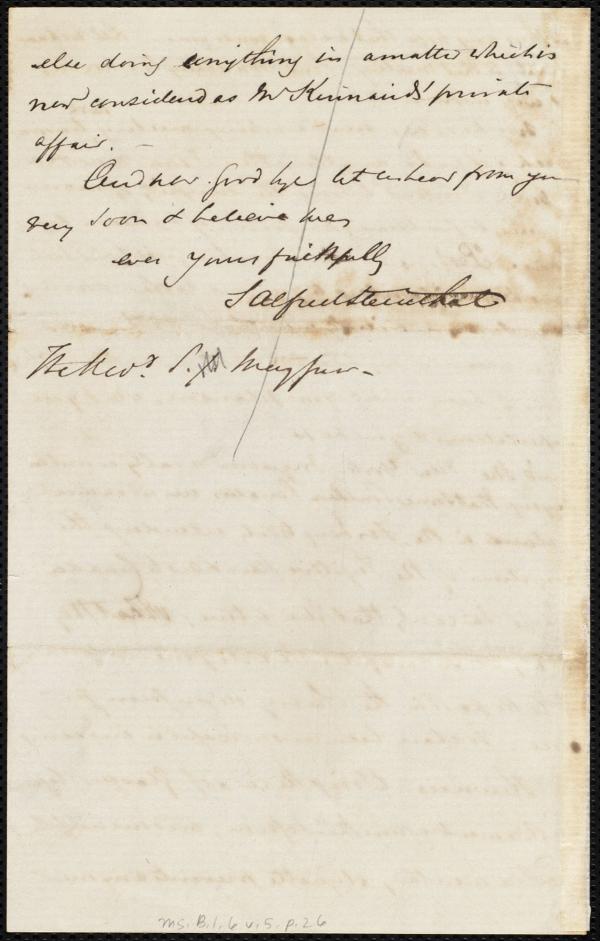 else doing anything in a matter which is
now considered as Mr Kinnairds' private
affair. —
And now. Good bye let us hear from you
very soon & believe me
ever yours faithfully
S Alfred Steinthal
The Revd. S. May Junr. —
Ms. B.1.6 v.5. p.26